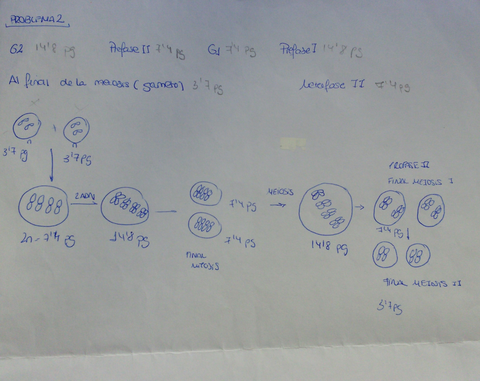 PROBLEMA 2
G2 14'8 pg Profase II 7'4 pg G1 7'4 pg Profase I 14'8 pg
Al final de la meiosis (gameto) 3'7 pg Metafase II 7'4 pg
n n
3'7 pg 3'7 pg
2n = 7'4 pg
14'8 pg
7'4 pg
7'4 pg
FINAL
MITOSIS
MEIOSIS
14'8 pg
PROFASE II
FINAL MEIOSIS I
7'4 pg
FINAL MEIOSIS II
3'7 pg